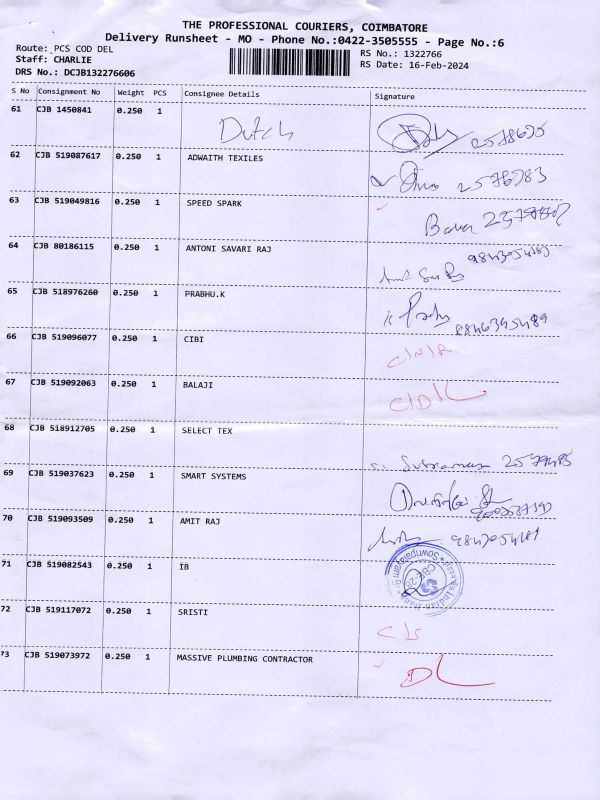 THE PROFESSIONAL COURIERS, COIMBATORE
Delivery Runsheet - MO - Phone No.:0422-3505555 - Page No.:6
Route: PCS COD DEL RS No.: 1322766
Staff: CHARLIE RS Date: 16-Feb-2024
DRS No.: DCJB132276606
S No Consignment No Weight PCS Consignee Details Signature
61 CJB 1450841 0.250 1 Dutch 2578695
62 CJB 519087617 0.250 1 ADWAITH TEXILES
63 CJB 519049816 0.250 1 SPEED SPARK
64 CJB 80186115 0.250 1 ANTONI SAVARI RAJ
65 CJB 518976260 0.250 1 PRABHU.K
66 CJB 519096077 0.250 1 CIBI C/N/R
67 CJB 519092063 0.250 1 BALAJI
68 CJB 518912705 0.250 1 SELECT TEX
69 CJB 519037623 0.250 1 SMART SYSTEMS
70 CJB 519093509 0.250 1 AMIT RAJ
71 CJB 519082543 0.250 1 IB
72 CJB 519117072 0.250 1 SRISTI
73 CJB 519073972 0.250 1 MASSIVE PLUMBING CONTRACTOR DL